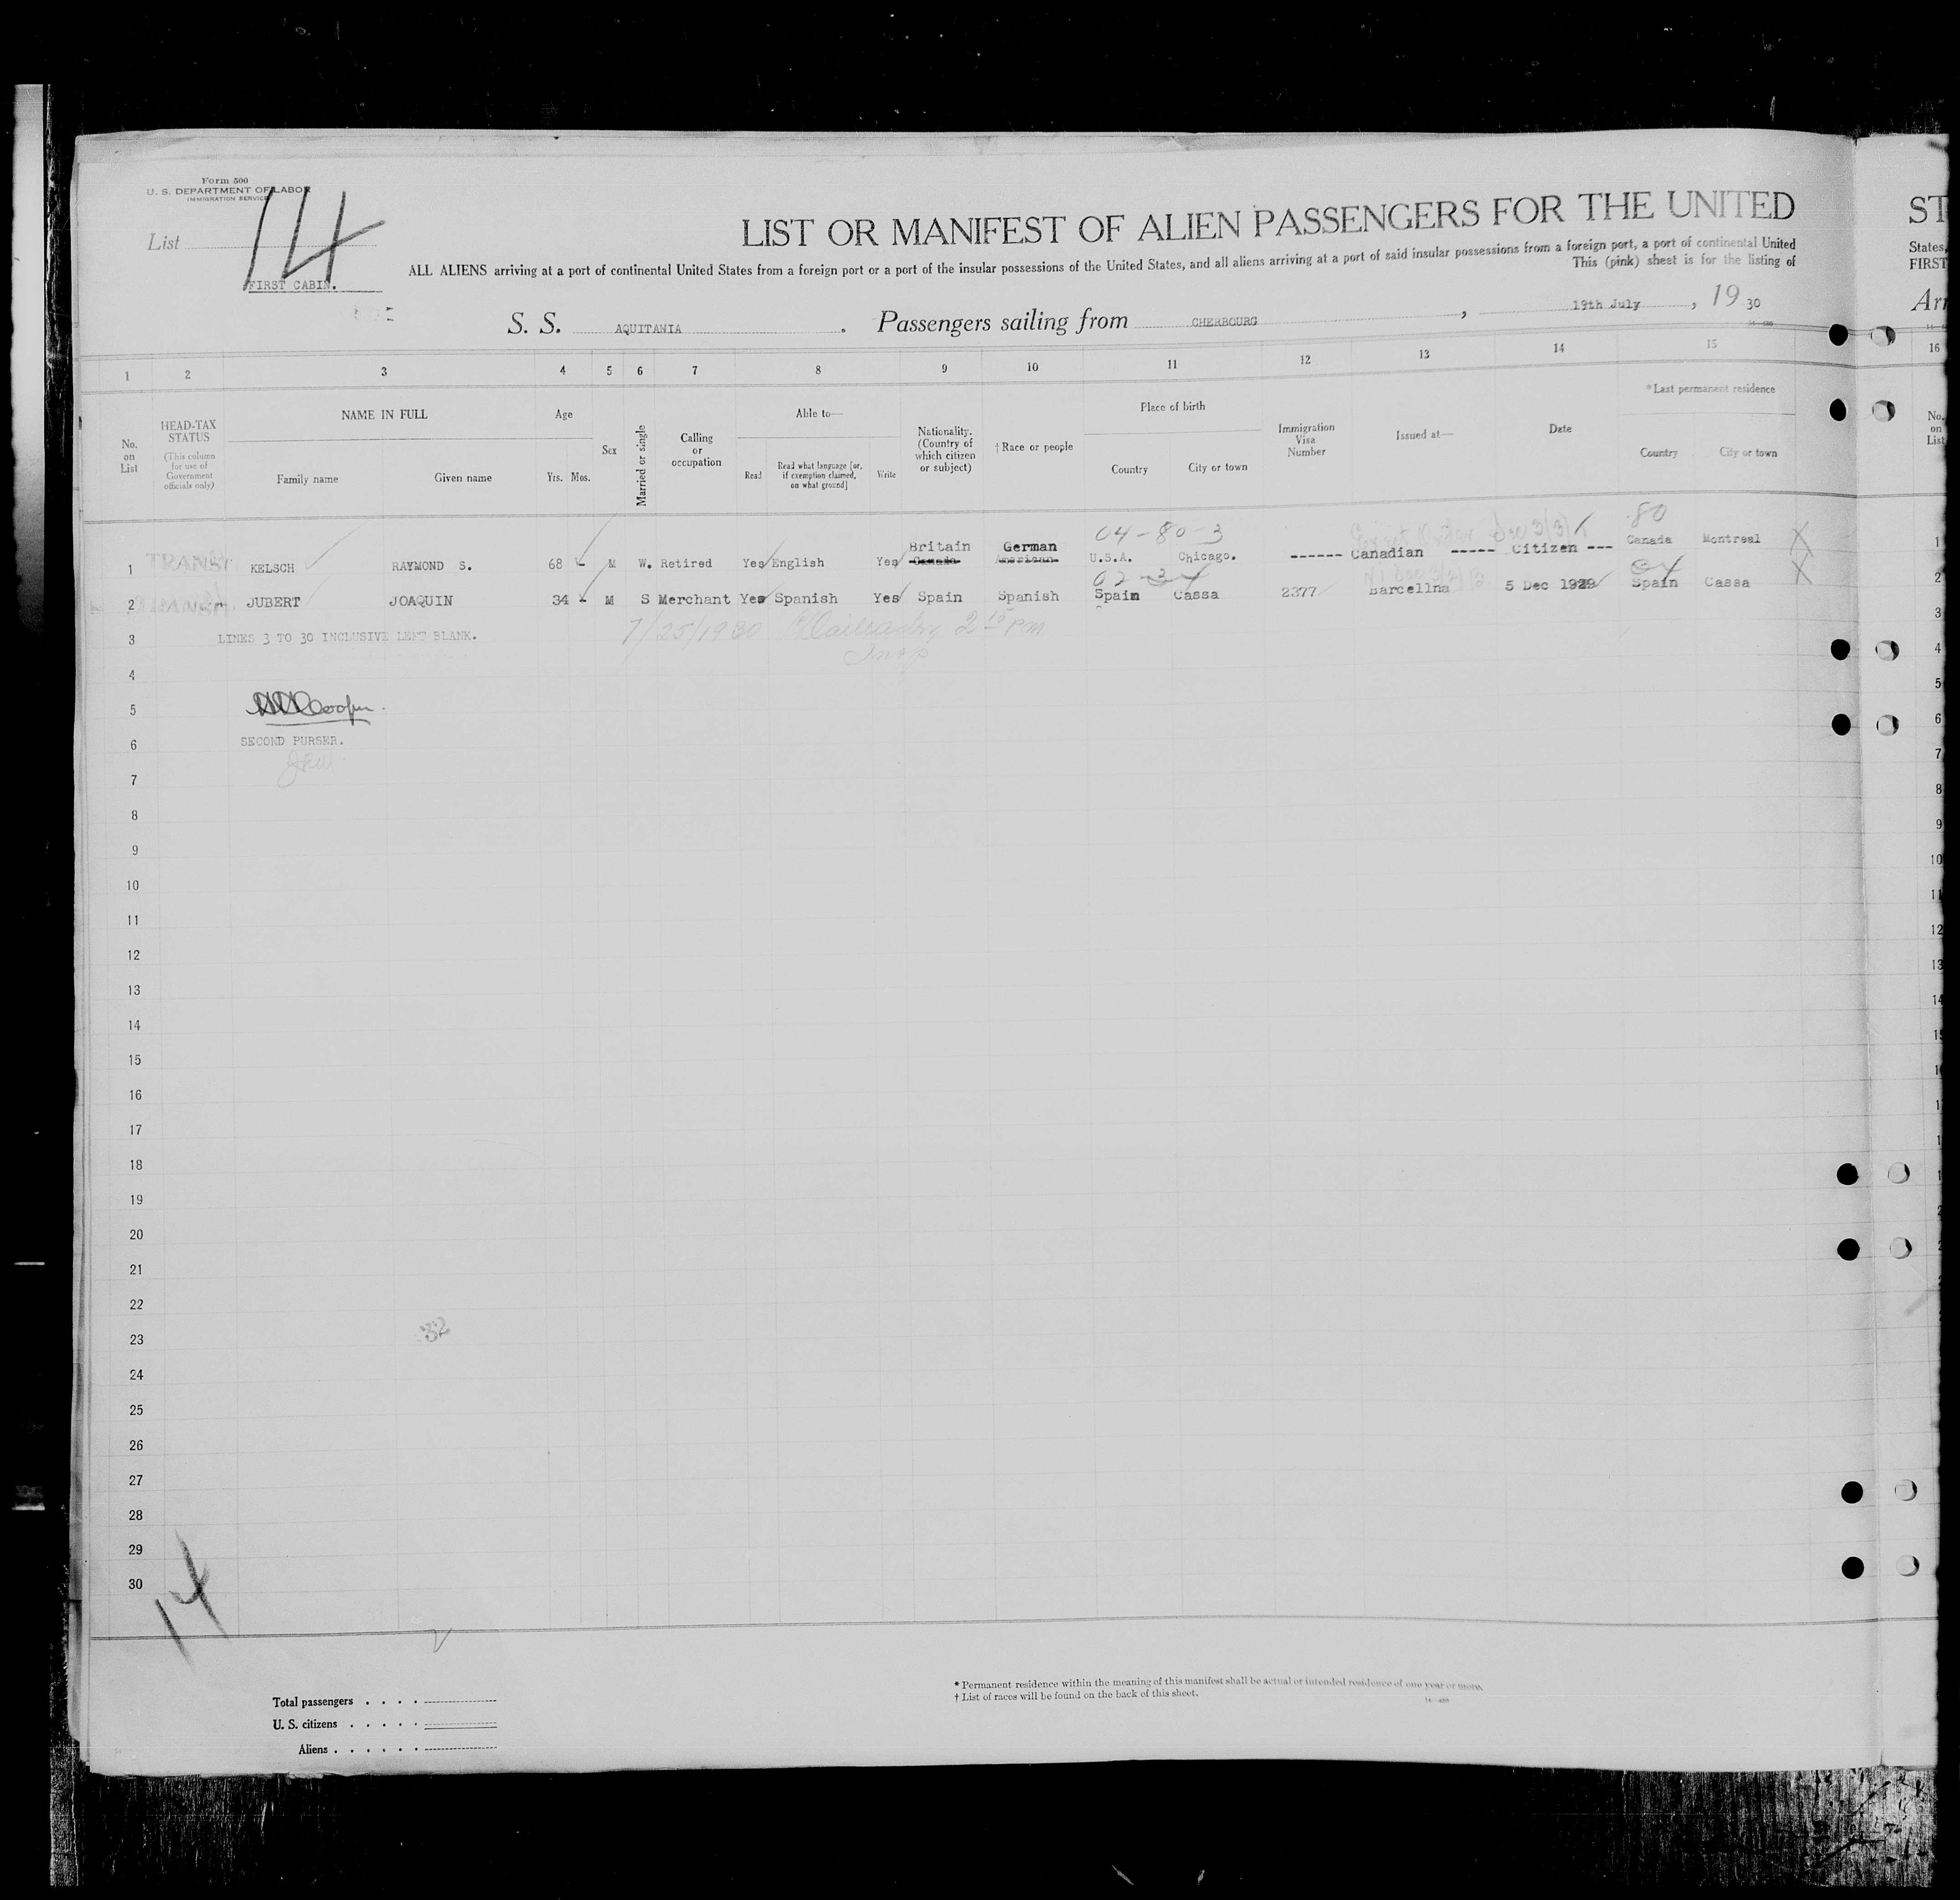 Form 500
U. S. DEPARTMENT OF LABOR
IMMIGRATION SERVICE
List 14
FIRST CABIN.
LIST OR MANIFEST OF ALIEN PASSENGERS FOR THE UNITED
ST
ALL ALIENS arriving at a port of continental United States from a foreign port or a port of the insular possessions of the United States, and all aliens arriving at a port of said insular possessions from a foreign port, a port of continental United
States,
This (pink) sheet is for the listing of
FIRST
S. S. AQUITANIA. Passengers sailing from CHERBOURG, 19th July, 19 30
Arr
1 2 3 4 5 6 7 8 9 10 11 12 13 14 15 16
No. on List
HEAD-TAX STATUS
(This column for use of Government officials only)
NAME IN FULL
Family name Given name
Age
Yrs. Mos.
Sex
Married or single
Calling or occupation
Able to—
Read
Read what language [or, if exemption claimed, on what ground]
Write
Nationality. (Country of which citizen or subject)
† Race or people
Place of birth
Country City or town
Immigration Visa Number
Issued at—
Date
* Last permanent residence
Country City or town
No. on List
04-80-3 80
Britain German
1 TRANSIT KELSCH RAYMOND S. 68 M W. Retired Yes English Yes Canada American U.S.A. Chicago. ------ Canadian ----- Citizen --- Canada Montreal X 1
2 JUBERT JOAQUIN 34 M S Merchant Yes Spanish Yes Spain Spanish Spain Cassa 2377 Barcellna 5 Dec 1929 Spain Cassa X 2
3 LINES 3 TO 30 INCLUSIVE LEFT BLANK. 7/25/1930 2 15 pm 3
Insp
4 4
5 Cooper. 5
6 SECOND PURSER. 6
7 7
8 8
9 9
10 10
11 11
12 12
13 13
14 14
15
16
17
18
19
20
21
22
23 32
24
25
26
27
28
29
30
14
Total passengers . . . .
U. S. citizens . . . . .
Aliens . . . . . .
* Permanent residence within the meaning of this manifest shall be actual or intended residence of one year or more.
† List of races will be found on the back of this sheet.